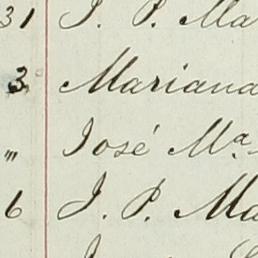 31 J. P. Ma
3 Mariana
〃 José Mª
6 J. P. Ma